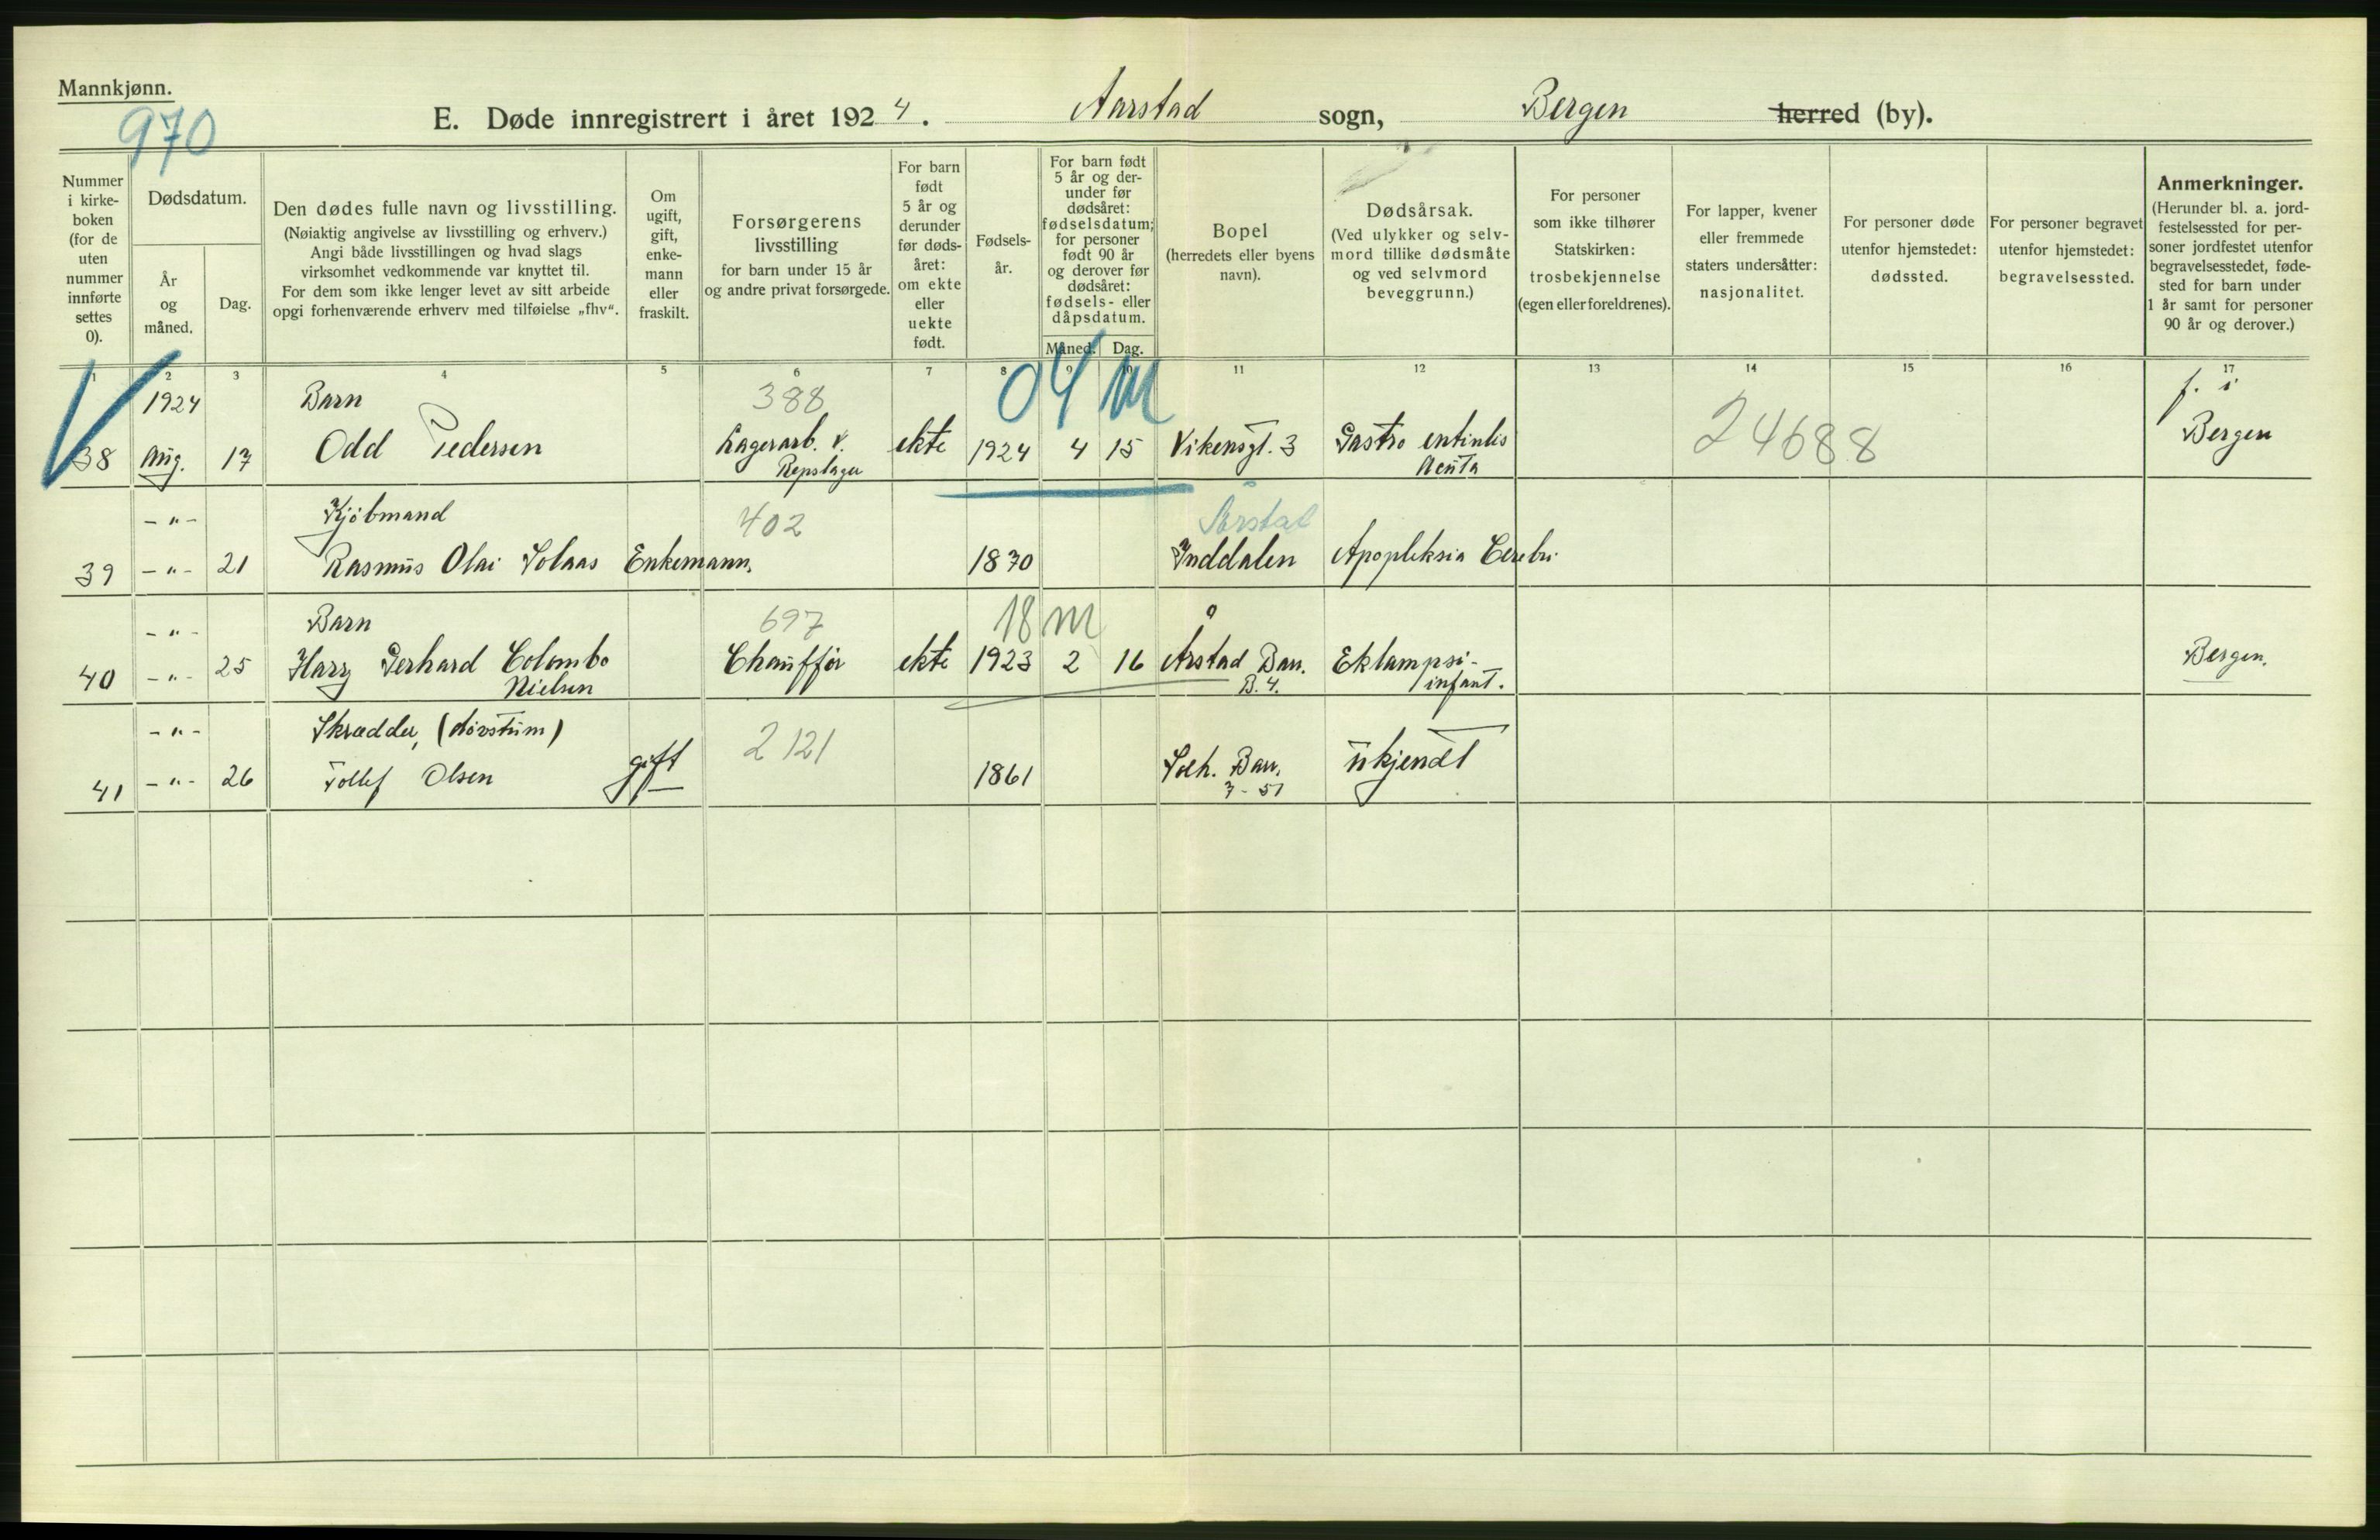 Mannkjønn.
970
E. Døde innregistrert i året 1924. Aarstad sogn, Bergen herred (by).
Nummer i kirke-boken (for de uten nummer innførte settes 0).
Dødsdatum.
År og måned.
Dag.
Den dødes fulle navn og livsstilling.
(Nøiaktig angivelse av livsstilling og erhverv.)
Angi både livsstillingen og hvad slags
virksomhet vedkommende var knyttet til.
For dem som ikke lenger levet av sitt arbeide
opgi forhenværende erhverv med tilføielse „fhv“.
Om ugift, gift, enke-mann eller fraskilt.
Forsørgerens
livsstilling
for barn under 15 år
og andre privat forsørgede.
For barn født 5 år og derunder før døds-året: om ekte eller uekte født.
Fødsels-år.
For barn født 5 år og der-under før dødsåret: fødselsdatum; for personer født 90 år og derover før dødsåret: fødsels- eller dåpsdatum.
Måned. Dag.
Bopel
(herredets eller byens
navn).
Dødsårsak.
(Ved ulykker og selv-
mord tillike dødsmåte
og ved selvmord
beveggrunn.)
For personer
som ikke tilhører
Statskirken:
trosbekjennelse
(egen eller foreldrenes).
For lapper, kvener
eller fremmede
staters undersåtter:
nasjonalitet.
For personer døde
utenfor hjemstedet:
dødssted.
For personer begravet
utenfor hjemstedet:
begravelsessted.
Anmerkninger.
(Herunder bl. a. jord-
festelsessted for per-
soner jordfestet utenfor
begravelsesstedet, føde-
sted for barn under
1 år samt for personer
90 år og derover.)
1 2 3 4 5 6 7 8 9 10 11 12 13 14 15 16 17
1924 Barn 388 04 m f. i
38 Aug. 17 Odd Pedersen Lagerarb. v. ekte 1924 4 15 Vikensgt. 3 Gastro entintis 24688 Bergen
Repslager Acuta
-"- Kjøbmand 402 Årstad
39 -"- 21 Rasmus Olai Solaas Enkemann. 1870 Inddalen Apopleksia Cerebri
-"- Barn 697 18 m
40 -"- 25 Harry Gerhard Colombo Chauffør ekte 1923 2 16 Årstad Barr. Eklampsi- Bergen.
Nielsen B. 4. infant.
-"- Skrædder, (døvstum) 2121
41 -"- 26 Tollef Olsen gift 1861 Solh. Barr. ukjendt
3 - 51